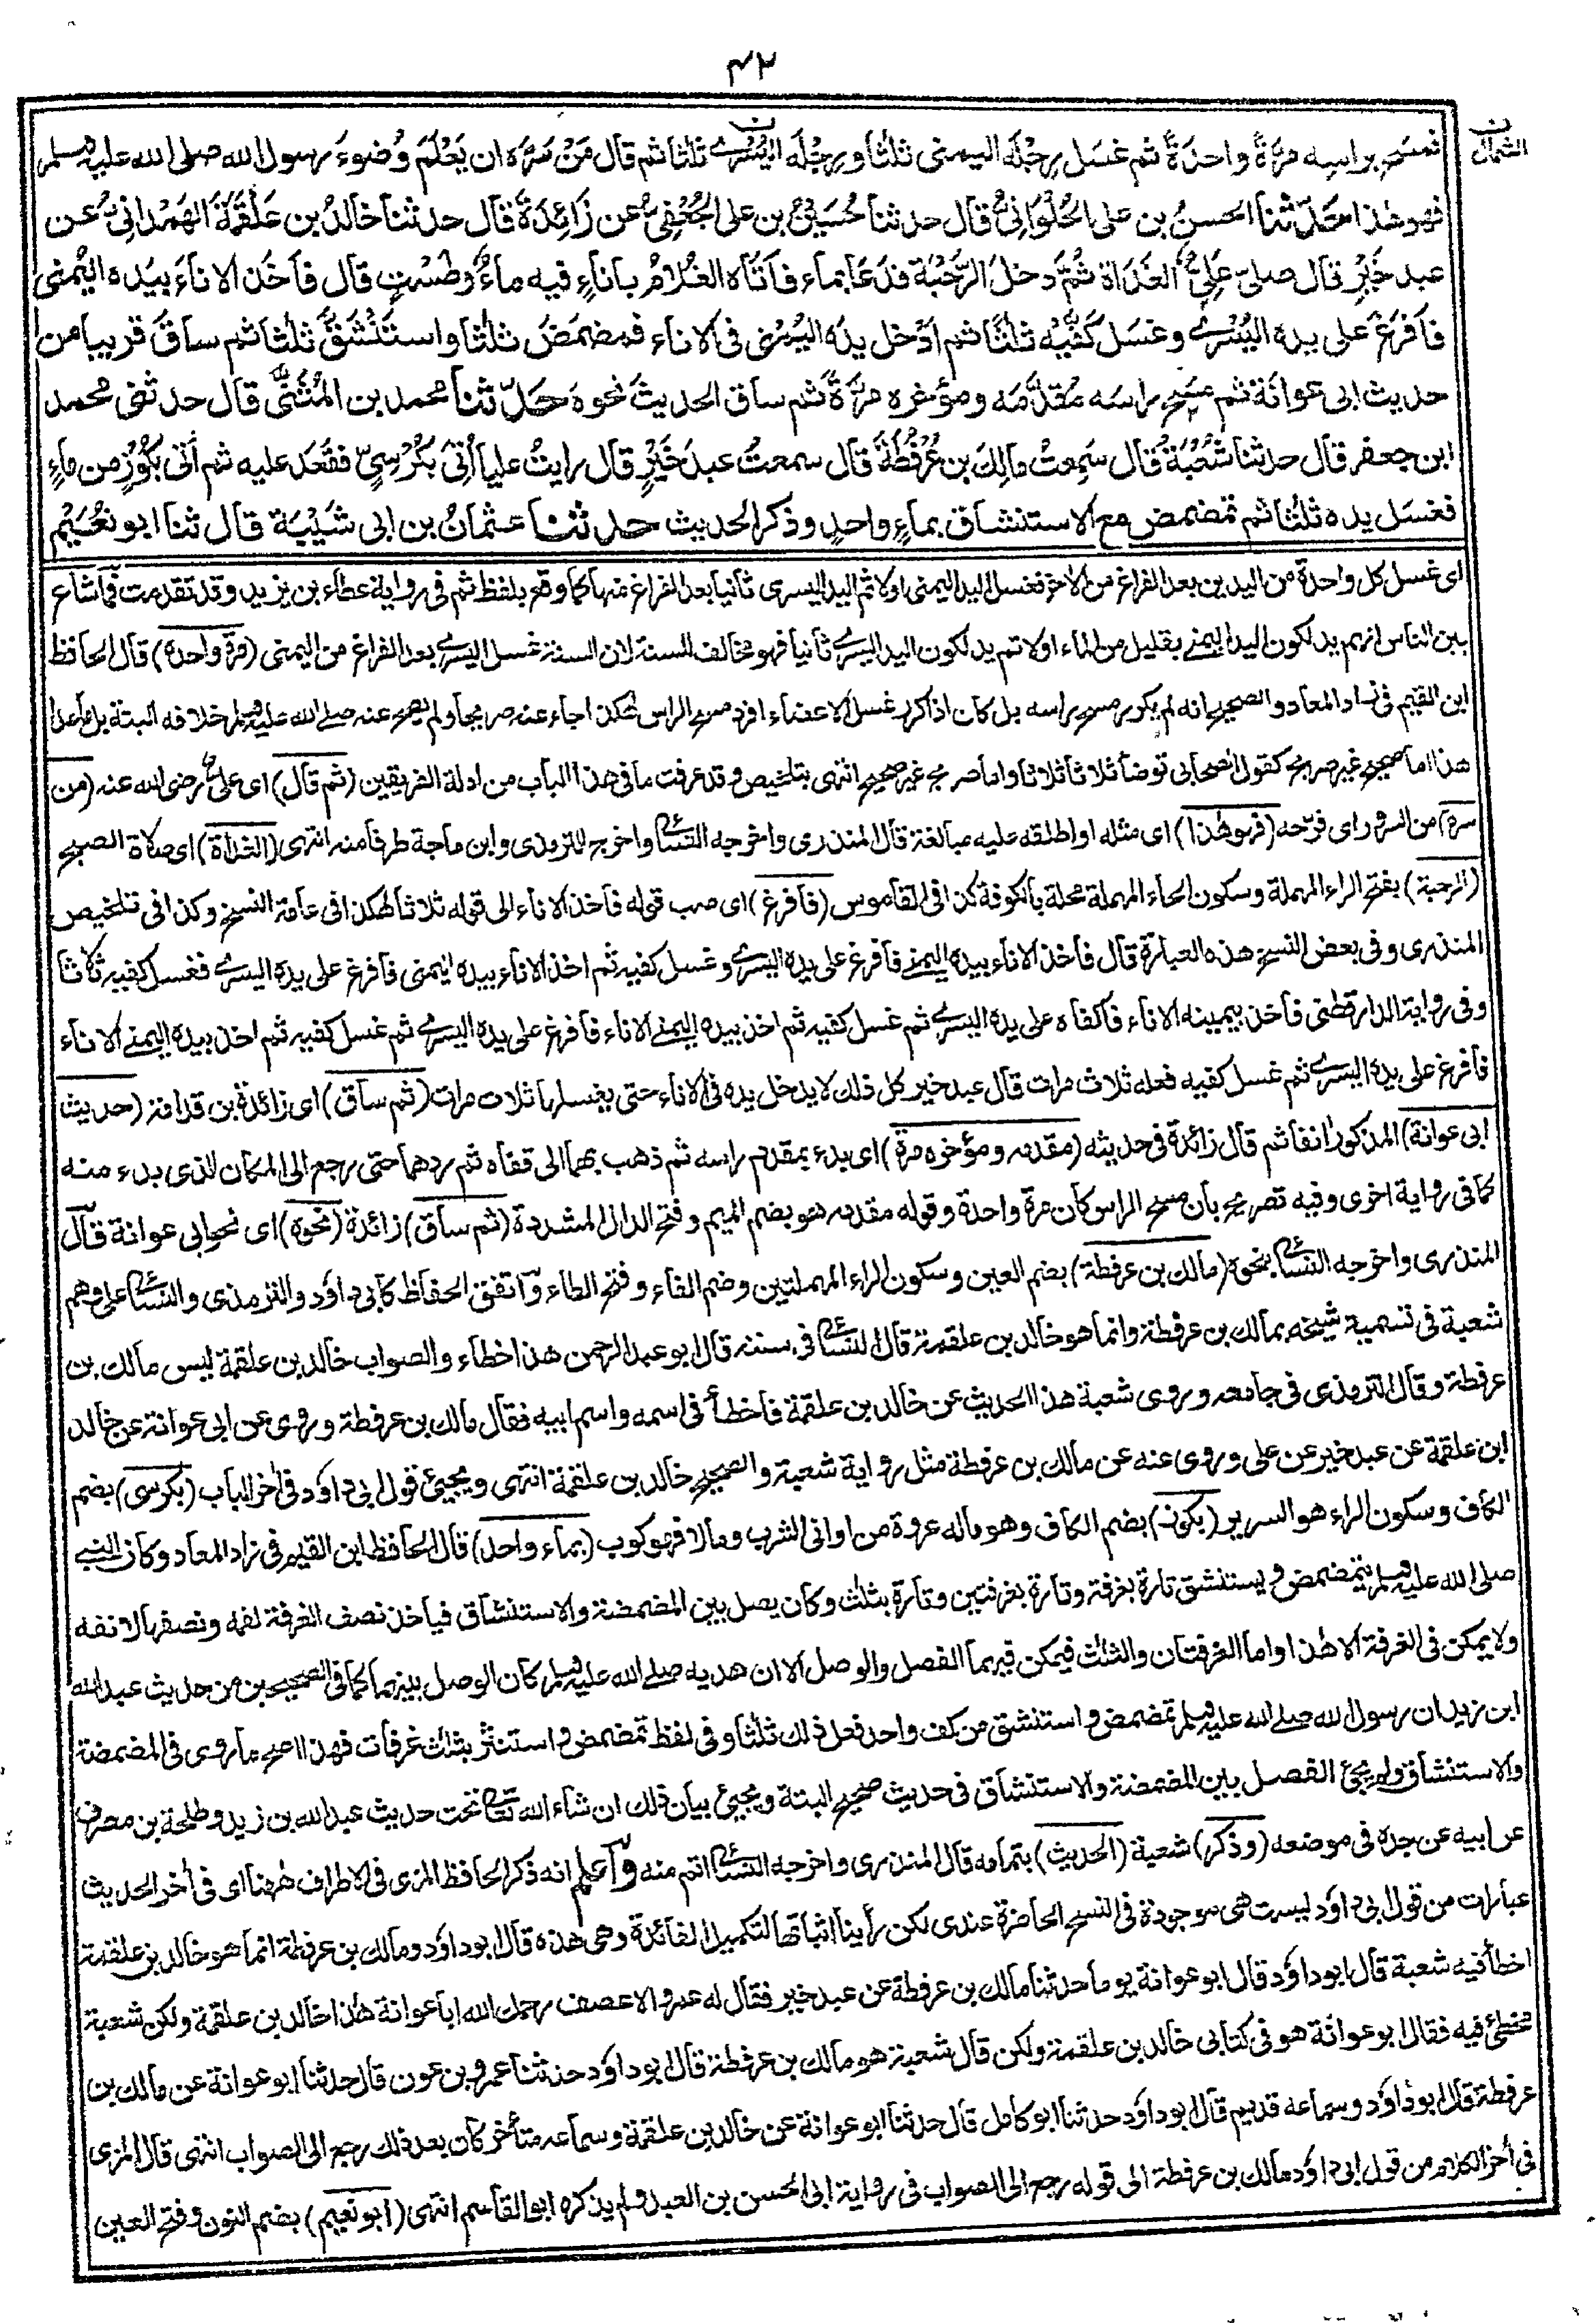 ٤٢
فمسح براسه مرّةً واحدةً ثم غسل رِجله اليمنى ثلثا ورِجله اليُسرٰے ثلثا ثم قال مَنْ سرَّه ان يَعْلَمَ وُضوءَ رسول الله صلى الله عليه وسلم
ن الشمال
فهو هٰذا حدّثنا الحسنُ بن على الحُلْوَانِيُّ قال حدثنا حُسَيْنُ بن على الجُعْفِيُّ عن زَائِدَةَ قال حدثنا خالدُ بن عَلْقَمَةَ الهَمْدانِيُّ عن
عبد خَيْرٍ قال صلىّ عَلِيٌّ الغَدَاةَ ثُمَّ دخلَ الرَّحْبَةَ فدَعَا بماء فاَتَاه الغُلامُ باناءٍ فيه ماءٌ وطَسْتٍ قال فاَخَذ الاناءَ بيَده اليُمنىٰ
فاَفرَغَ على يده اليُسْرٰے وغسَل كَفَّيْه ثلثًا ثم اَدْخل يدَه اليُمْنى فى الاناء فمضمضَ ثلثا واستَنْشَقَ ثلثا ثم ساقَ قريبا من
حديث ابى عوانَةَ ثم مسَح راسَه مُقدَّمَه ومؤخره مرَّةً ثم ساق الحديثَ نحوه حدّثنا محمد بن المُثَنّٰى قال حدثنى محمد
ابن جعفر قال حدثنا شُعْبَةُ قال سَمِعتُ مالِكَ بن عُرْفُطَةَ قال سمعتُ عبدَ خَيْرٍ قال رايتُ عليا اُتِىَ بكُرْسِىٍّ فقَعَد عليه ثم اُتى بكُوْزٍ من ماءٍ
فغسَل يده ثلثا ثم تمضمض مع الاستنشاق بماءٍ واحدٍ وذكر الحديث حدثنا عثمانُ بن ابى شَيْبَة قال ثنا ابو نُعَيْم
اى غسل كل واحدة من اليدين بعد الفراغ من الاخرى فغسل اليد اليمنى اولا ثم اليد اليسرى ثانيا بعد الفراغ منها كما وقع بلفظ ثم فى رواية عطاء بن يزيد وقد تقدمت فما شاع
بين الناس انهم يدلكون اليد اليمنے بقليل من الماء اولا ثم يدلكون اليد اليسرٰے ثانيا فهو مخالف للسنة لان السنة غسل اليسرٰے بعد الفراغ من اليمنى (مرة واحدة) قال الحافظ
ابن القيم فى زاد المعاد والصحيح انه لم يكرر مسح راسه بل كان اذا كرر غسل الاعضاء افرد مسح الراس هكذا جاء عنه صريحا ولم يصح عنه صلے الله عليه وسلم خلافه البتة بل ما عدا
هذا اما صحيح غير صريح كقول الصحابى توضأ ثلاثا ثلاثا واما صريح غير صحيح انتهى بتلخيص وقد عرفت ما فى هذا الباب من ادلة الفريقين (ثم قال) اى علىؓ رضى الله عنه (من
سره) من السرور اى فرّحه (فهو هٰذا) اى مثله او اطلقه عليه مبالغة قال المنذرى واخرجه النسائى واخرج الترمذى وابن ماجة طرفا منه انتهى (الغداة) اى صلاة الصبح
(الرحبة) بفتح الراء المهملة وسكون الحاء المهملة محلة بالكوفة كذا فى القاموس (فأفرغ) اى صب قوله فأخذ الاناء الى قوله ثلاثا هكذا فى عامة النسخ وكذا فى تلخيص
المنذرى وفى بعض النسخ هذه العبارة قال فأخذ الاناء بيده اليمنے فأفرغ على يده اليسرٰے وغسل كفيه ثم اخذ الاناء بيده اليمنى فأفرغ على يده اليسرٰے فغسل كفيه ثلاثا
وفى رواية الدارقطنى فأخذ بيمينه الاناء فأكفاه على يده اليسرٰے ثم غسل كفيه ثم اخذ بيده اليمنے الاناء فأفرغ على يده اليسرٰے ثم غسل كفيه ثم اخذ بيده اليمنے الاناء
فأفرغ على يده اليسرٰے ثم غسل كفيه فعله ثلاث مرات قال عبد خير كل ذلك لا يدخل يده فى الاناء حتى يغسلها ثلاث مرات (ثم ساق) اى زائدة بن قدامة (حديث
ابى عوانة) المذكور انفا ثم قال زائدة فى حديثه (مقدمه ومؤخره مرة) اى بدء بمقدم راسه ثم ذهب بهما الى قفاه ثم ردهما حتى رجع الى المكان الذى بدء منه
كما فى رواية اخرى وفيه تصريح بان مسح الراس كان مرة واحدة وقوله مقدمه هو بضم الميم وفتح الدال المشددة (ثم ساق) زائدة (نحوه) اى نحو ابى عوانة قال
المنذرى واخرجه النسائى بنحوه (مالك بن عرفطة) بضم العين وسكون الراء المهملتين وضم الفاء وفتح الطاء واتفق الحفاظ كابى داؤد والترمذى والنسائى على وهم
شعبة فى تسمية شيخه بمالك بن عرفطة وانما هو خالد بن علقمة قال النسائى فى سننه قال ابو عبد الرحمن هذا خطاء والصواب خالد بن علقمة ليس مالك بن
عرفطة وقال الترمذى فى جامعه وروى شعبة هذا الحديث عن خالد بن علقمة فاخطأ فى اسمه واسم ابيه فقال مالك بن عرفطة وروى عن ابى عوانة عن خالد
ابن علقمة عن عبد خير عن على وروى عنه عن مالك بن عرفطة مثل رواية شعبة والصحيح خالد بن علقمة انتهى ويجيئ قول ابى داؤد فى اٰخر الباب (بكرسى) بضم
الكاف وسكون الراء هو السرير (بكوز) بضم الكاف وهو ماله عروة من اوانى الشرب وما لا فهو كوب (بماء واحد) قال الحافظ ابن القيم فى زاد المعاد وكان النبے
صلى الله عليه وسلم يتمضمض ويستنشق تارة بغرفة وتارة بغرفتين وتارة بثلٰث وكان يصل بين المضمضة والاستنشاق فياخذ نصف الغرفة لفمه ونصفها لانفه
ولا يمكن فى الغرفة الا هٰذا واما الغرفتان والثلٰث فيمكن فيهما الفصل والوصل الا ان هديه صلے الله عليه وسلم كان الوصل بينهما كما فى الصحيحين من حديث عبد الله
ابن زيد ان رسول الله صلے الله عليه وسلم تمضمض واستنشق من كف واحد فعل ذلك ثلثا وفى لفظ تمضمض واستنثر بثلث غرفات فهذا اصح ما روى فى المضمضة
والاستنشاق ولم يجئ الفصل بين المضمضة والاستنشاق فى حديث صحيح البتة ويجيئ بيان ذلك ان شاء الله تعالى تحت حديث عبد الله بن زيد وطلحة بن مصرف
عن ابيه عن جده فى موضعه (وذكر) شعبة (الحديث) بتمامه قال المنذرى واخرجه النسائى اتم منه واعلم انه ذكر الحافظ المزى فى الاطراف هٰهنا اى فى اٰخر الحديث
عبارات من قول ابى داؤد ليست هى موجودة فى النسخ الحاضرة عندى لكن رأينا اثباتها لتكميل الفائدة وهى هذه قال ابو داؤد ومالك بن عرفطة انما هو خالد بن علقمة
اخطأ فيه شعبة قال ابو داؤد قال ابو عوانة يوما حدثنا مالك بن عرفطة عن عبد خير فقال له عمرو الاعصف رحمك الله ابا عوانة هٰذا خالد بن علقمة ولكن شعبة
مخطئ فيه فقال ابو عوانة هو فى كتابى خالد بن علقمة ولكن قال شعبة هو مالك بن عرفطة قال ابو داؤد حدثنا عمرو بن عون قال حدثنا ابو عوانة عن مالك بن
عرفطة قال ابو داؤد وسماعه قديم قال ابو داؤد حدثنا ابو كامل قال حدثنا ابو عوانة عن خالد بن علقمة وسماعه متأخر كان بعد ذلك رجع الى الصواب انتهى قال المزى
فى اٰخر الكلام من قول ابى داؤد مالك بن عرفطة الى قوله رجع الى الصواب فى رواية ابى الحسن بن العبد ولم يذكره ابو القاسم انتهى (ابو نعيم) بضم النون وفتح العين